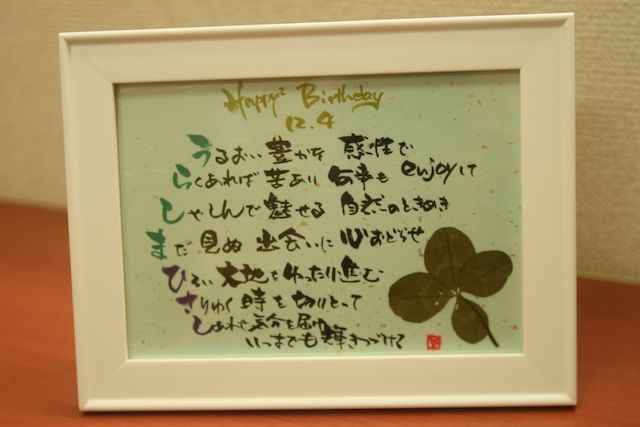 Happy Birthday
12.4
うるおい豊かな 感性で
らくあれば苦あり 何事も enjoyして
しゃしんで魅せる 自然のときめき
まだ見ぬ 出会いに 心おどらせ
ひろい 大地を ゆったり進む
さりゆく 時を 切りとって
しあわせ気分を届け
いつまでも 輝きつづけて